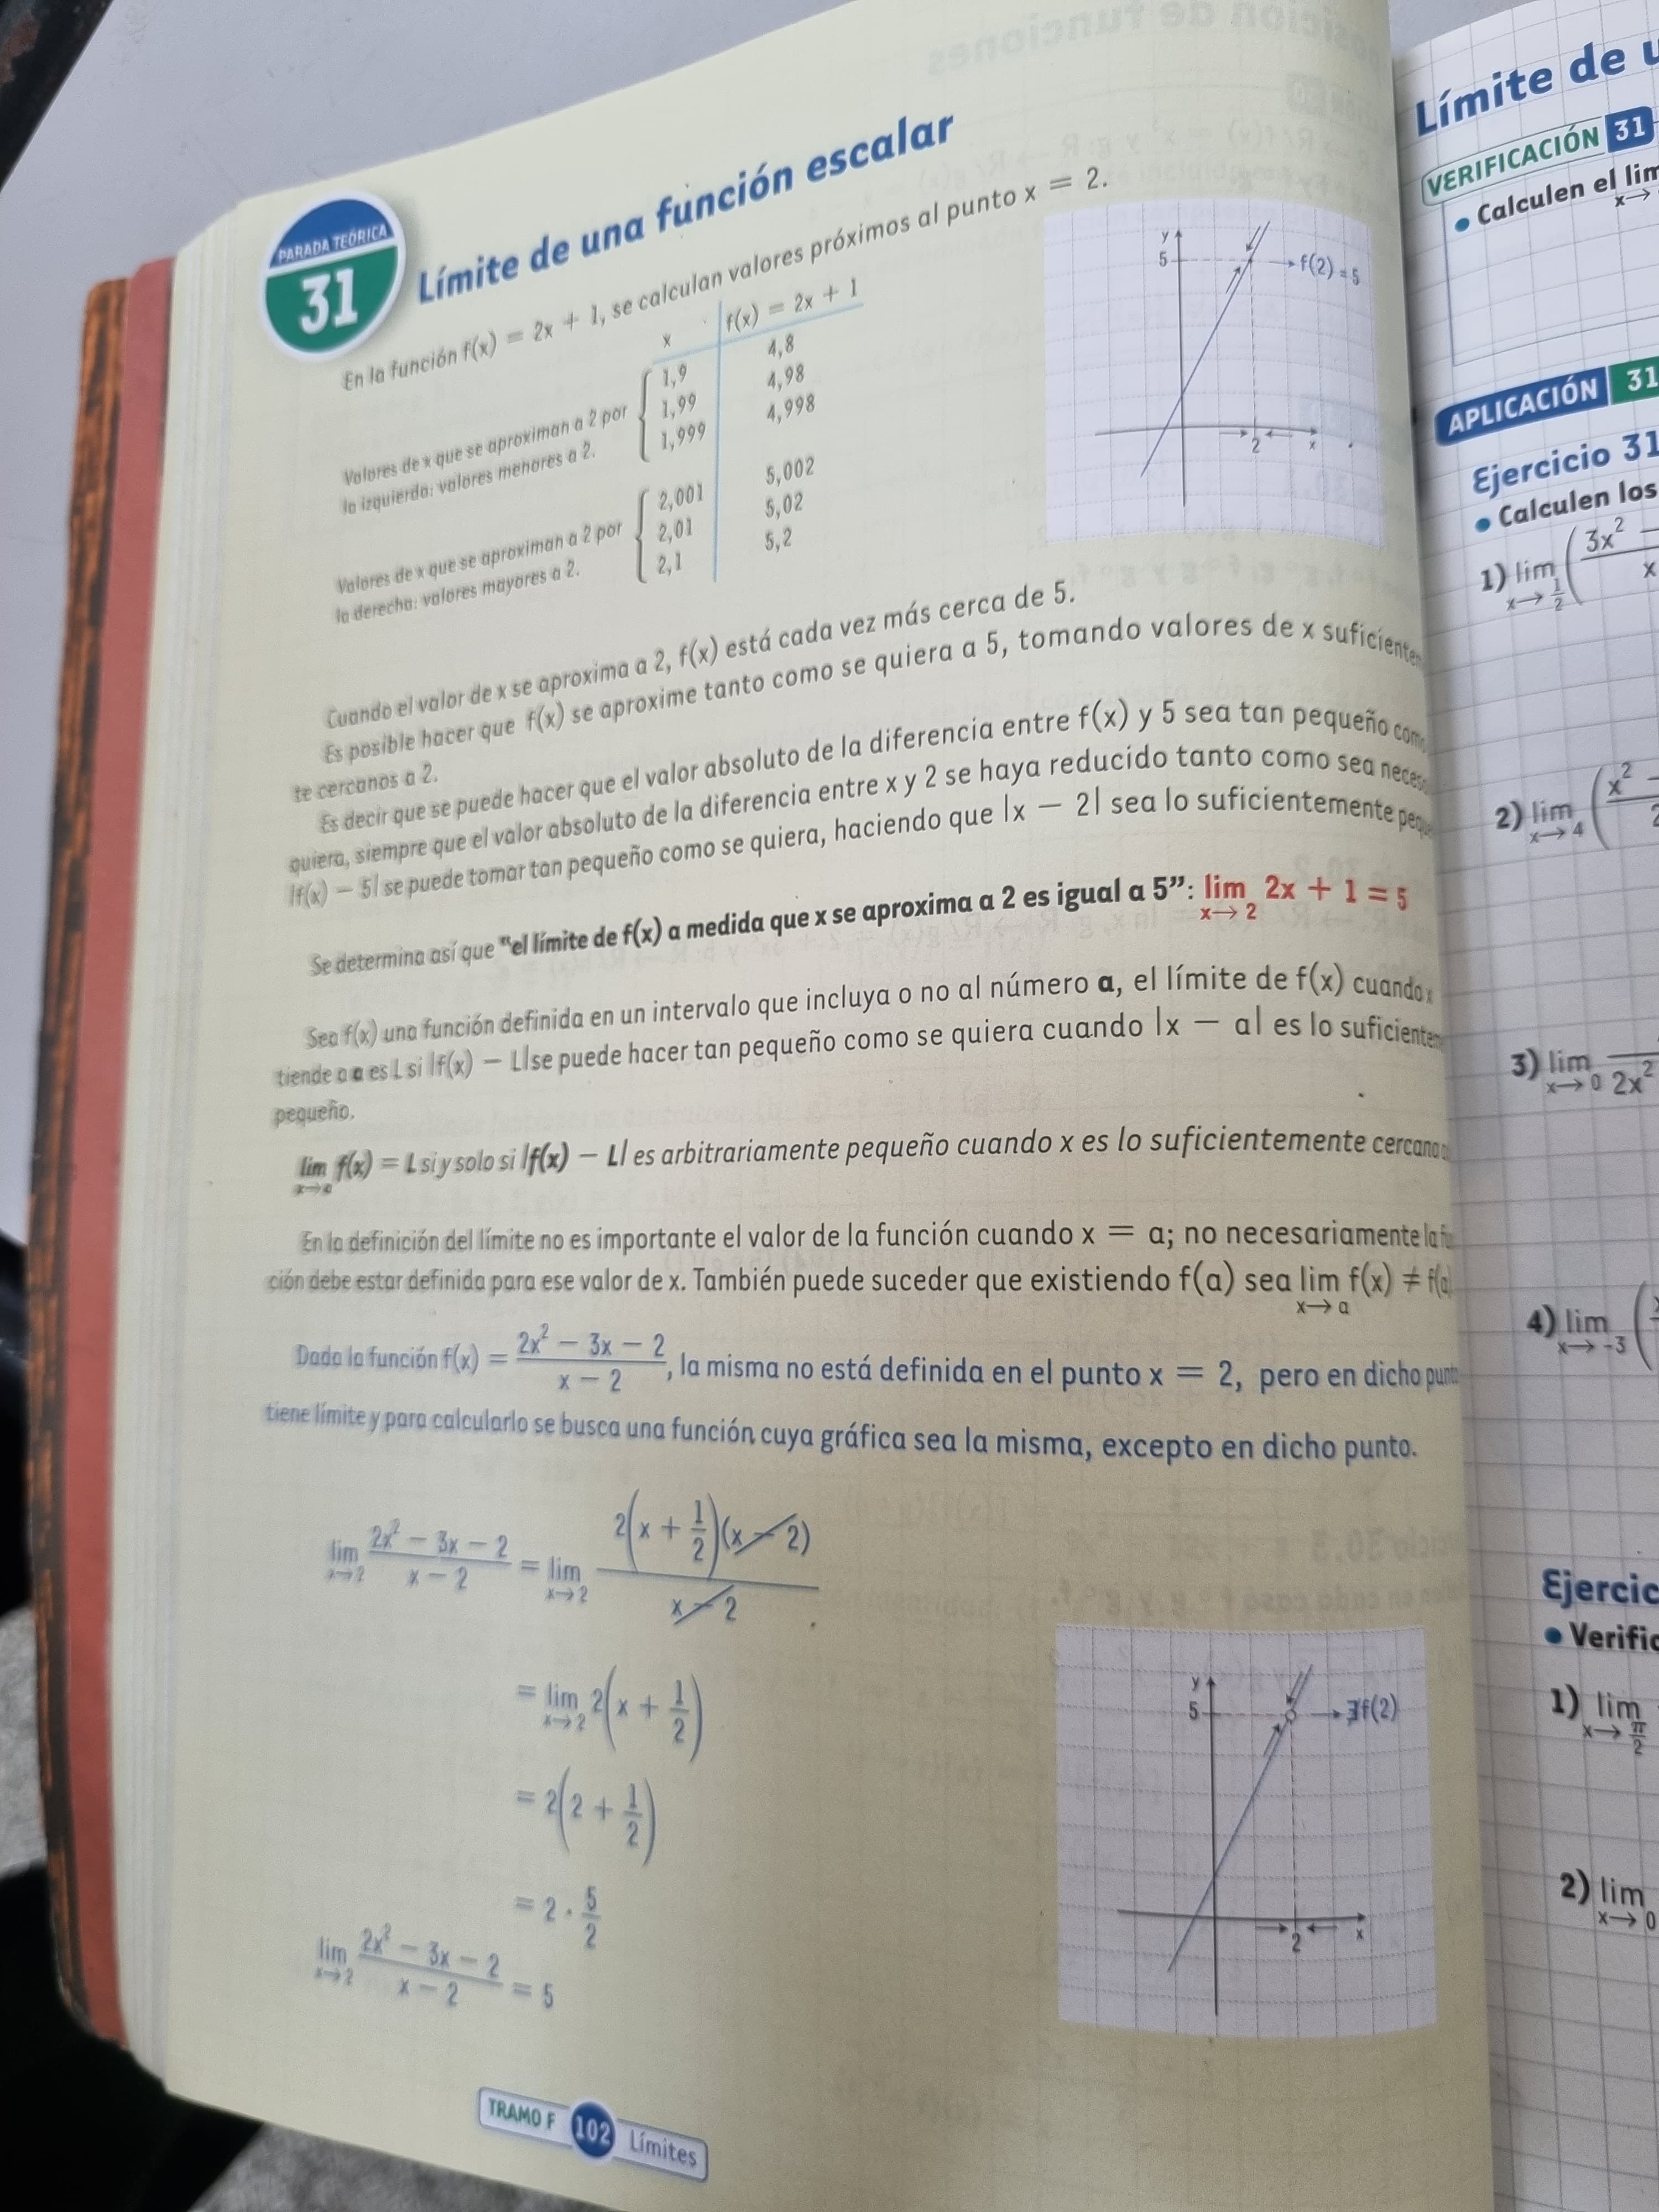 PARADA TEÓRICA
31
Límite de una función escalar
En la función f(x) = 2x + 1, se calculan valores próximos al punto x = 2.
x f(x) = 2x + 1
Valores de x que se aproximan a 2 por
la izquierda: valores menores a 2.
1,9 4,8
1,99 4,98
1,999 4,998
Valores de x que se aproximan a 2 por
la derecha: valores mayores a 2.
2,001 5,002
2,01 5,02
2,1 5,2
y
5
f(2) = 5
2
x
Cuando el valor de x se aproxima a 2, f(x) está cada vez más cerca de 5.
Es posible hacer que f(x) se aproxime tanto como se quiera a 5, tomando valores de x suficiente
te cercanos a 2.
Es decir que se puede hacer que el valor absoluto de la diferencia entre f(x) y 5 sea tan pequeño como
quiera, siempre que el valor absoluto de la diferencia entre x y 2 se haya reducido tanto como sea
|f(x) − 5| se puede tomar tan pequeño como se quiera, haciendo que |x − 2| sea lo suficientemente
Se determina así que "el límite de f(x) a medida que x se aproxima a 2 es igual a 5”: lim x→2 2x + 1 = 5
Sea f(x) una función definida en un intervalo que incluya o no al número a, el límite de f(x) cuando x
tiende a a es L si |f(x) − L| se puede hacer tan pequeño como se quiera cuando |x − a| es lo
pequeño.
lim x→a f(x) = L si y solo si |f(x) − L| es arbitrariamente pequeño cuando x es lo suficientemente cercano
En la definición del límite no es importante el valor de la función cuando x = a; no necesariamente la
ción debe estar definida para ese valor de x. También puede suceder que existiendo f(a) sea lim x→a f(x) ≠ f(a)
Dada la función f(x) = (2x² − 3x − 2)/(x − 2), la misma no está definida en el punto x = 2, pero en dicho punto
tiene límite y para calcularlo se busca una función cuya gráfica sea la misma, excepto en dicho punto.
lim x→2 (2x² − 3x − 2)/(x − 2) = lim x→2 2(x + 1/2)(x − 2)/(x − 2)
= lim x→2 2(x + 1/2)
= 2(2 + 1/2)
= 2 · 5/2
lim x→2 (2x² − 3x − 2)/(x − 2) = 5
y
5
∄f(2)
2
x
TRAMO F 102 Límites
Límite de
VERIFICACIÓN 31
• Calculen el lim
x→
APLICACIÓN 31
Ejercicio 31
• Calculen los
1) lim x→1/2 (3x² −
x
2) lim x→4 (x² −
3) lim x→0
2x²
4) lim x→-3 (
Ejercic
• Verific
1) lim x→π/2
2) lim x→0